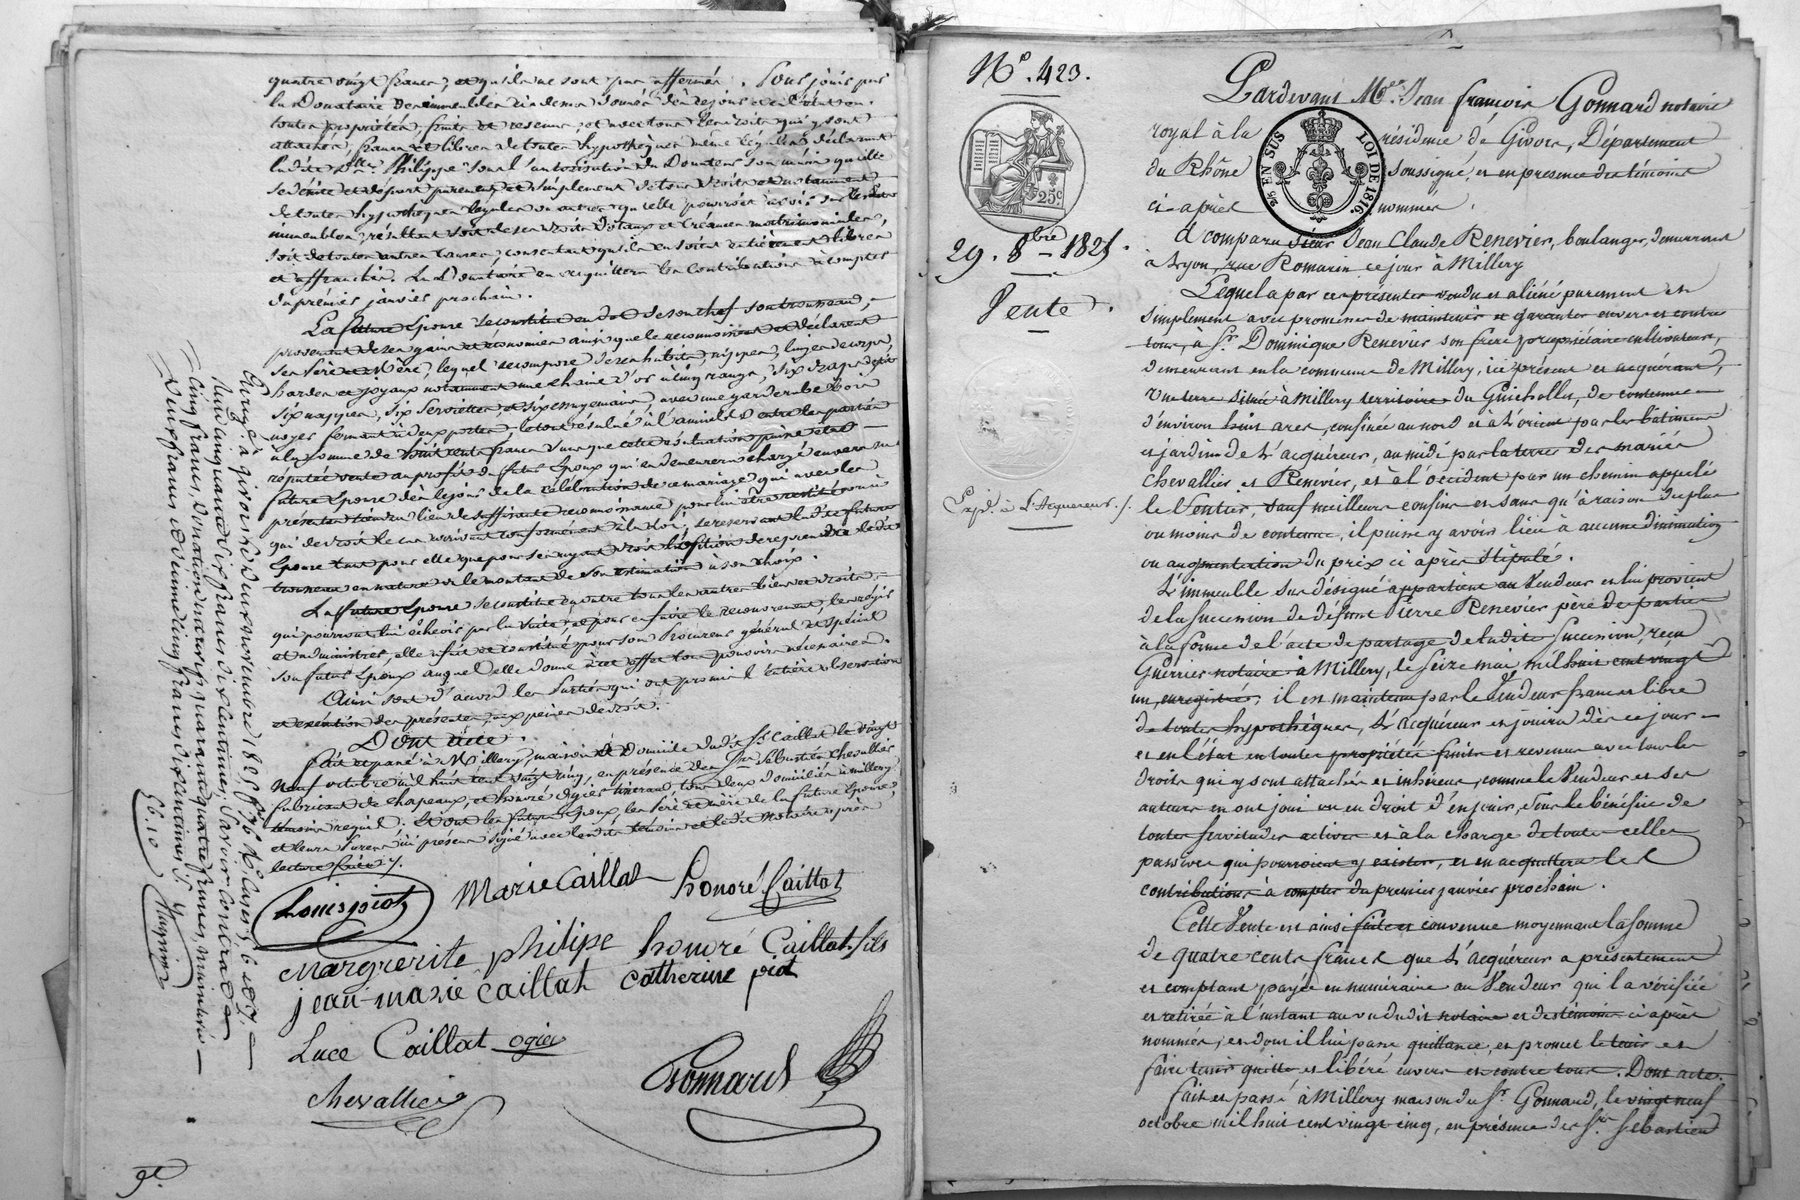 quatre vingt francs, et qu'ils ne sont pas affermés. Pour jouir par
la Donataire des immeubles ci dessus donnés dès ce jour et en l'état en
toutes propriétés, fruits et revenus, et avec tous les droits qui y sont
attachés, francs et libres de toutes hypothèques même légales déclarant
ladite D.elle Philippe sous l'autorisation du Donateur son mari qu'elle
se désiste et départ purement et simplement de tous droits et notamment
de toutes hypothèques légales ou autres qu'elle pourroit avoir sur lesdits
immeubles, résultant soit de ses droits dotaux et créances matrimoniales,
soit de toutes autres causes, consentant qu'ils en soient entièrement libres
et affranchis. La Donataire en acquittera les contributions à compter
du premier janvier prochain.
La future Epouse se constitue en dot de son chef son trousseau,
provenant de ses gains et économies ainsi que le reconnoissent et déclarent
ses Père et Mère, lequel se compose de ses habits, nippes, linges de corps,
hardes et joyaux notamment une chaine d'or à cinq rangs, six draps de lit
six nappes, six serviettes et six essuyemains, avec une garderobe bois
noyer fermant à deux portes, le tout évalué à l'amiable entre les parties
à la somme de huit cents francs sans que cette évaluation puisse être
réputée vente au profit du futur Epoux qui en demeurera chargé envers sa
future Epouse dès le jour de la célébration de ce mariage qui avec les
présentes tiendra lieu de suffisante reconnoissance pour lui être restitué ou à
qui de droit le cas arrivant conformément à la loi, se réservant ladite future
Epouse tant pour elle que pour ses ayant droit l'option de reprendre ledit
trousseau en nature ou le montant de son estimation à son choix.
La future Epouse se constitue en outre tous les autres biens et droits
qui pourront lui échoir par la suite, et pour en faire le recouvrement, les régir
et administrer, elle a fait et constitué pour son Procureur général et spécial
son futur Epoux auquel elle donne à cet effet tous pouvoirs nécessaires.
Ainsi sont d'accord les Parties qui ont promis l'entière observation
et exécution des présentes, aux peines de droit.
Dont acte.
Fait et passé à Millery, maison de Domicile dudit S.r Caillat le vingt
neuf octobre mil huit cent vingt cinq, en présence des S.rs Sébastien Chevallier
fabricant de chapeaux, et honoré Ogier, tous deux domiciliés à Millery
témoins requis. Et ont les futurs Epoux, les Père et mère de la future Epouse,
et leurs Parens ici présens signé avec lesdits témoins et ledit Notaire après
lecture faite /.
Louis piot
Marie Caillat
honoré Caillat
Marguerite philipe
honoré Caillat fils
jean-marie Caillat
Catherine piot
Luce Caillat
ogier
Chevallier
Gonnard
Enreg.é à givors le deux novembre 1825
cinquante six francs dix centimes, Savoir Contrat de
cinq francs, Donation
Deux francs
56.10
N.o 423.
25.c
25.c EN SUS LOI DE 1816.
29. 8bre 1825.
Vente.
Exp.d à l'Acquereur. /.
Pardevant M.tre Jean françois Gonnard notaire
royal à la résidence de Givors, Département
du Rhône soussigné, et en présence des témoins
ci-après nommés.
A comparu sieur Jean Claude Renevier, boulanger, demeurant
à Lyon, rue Romarin ce jour à Millery
Lequel a par ces présentes vendu et aliéné purement et
simplement avec promesse de maintenir et garantir envers et contre
tous, à S.r Dominique Renevier son frère propriétaire cultivateur,
demeurant en la commune de Millery, ici présent et acquérant,
une terre située à Millery territoire du Guicholles, de contenue
d'environ huit ares, confinée au nord et à l'orient par les bâtimens
et jardin de l'acquéreur, au midi par la terre des mariés
Chevallier et Renevier, et à l'occident par un chemin appelé
le Sentier, sauf meilleurs confins et sans qu'à raison du plus
ou moins de contenue, il puisse y avoir lieu à aucune diminution
ou augmentation du prix ci après stipulé.
L'immeuble sus désigné appartient au Vendeur et lui provient
de la succession de défunt Pierre Renevier père de partie
à la forme de l'acte de partage de ladite Succession, reçu
Guerrier notaire à Millery, le seize mai mil huit cent vingt
un, enregistré; il est maintenu par le Vendeur franc et libre
de toutes hypothèques, L'acquéreur en jouira dès ce jour
et en l'état en toutes propriétés fruits et revenus avec tous les
droits qui y sont attachés et inhérens, comme le Vendeur et ses
auteurs en ont joui ou eu droit d'en jouir, sous le bénéfice de
toutes servitudes actives et à la charge de toutes celles
passives qui pourroient y exister, et en acquittera les
contributions à compter du premier janvier prochain.
Cette Vente est ainsi faite et convenue moyennant la somme
de quatre cents francs que L'acquéreur a présentement
et comptant payée en numéraire au Vendeur qui l'a vérifiée
et retirée à l'instant au vu dudit notaire et des témoins ci après
nommés, et dont il lui passe quittance, et promet le tenir et
faire tenir quitte et libéré envers et contre tous. Dont acte.
Fait et passé à Millery maison du S.r Gonnard, le vingt neuf
octobre mil huit cent vingt cinq, en présence des S.rs Sébastien